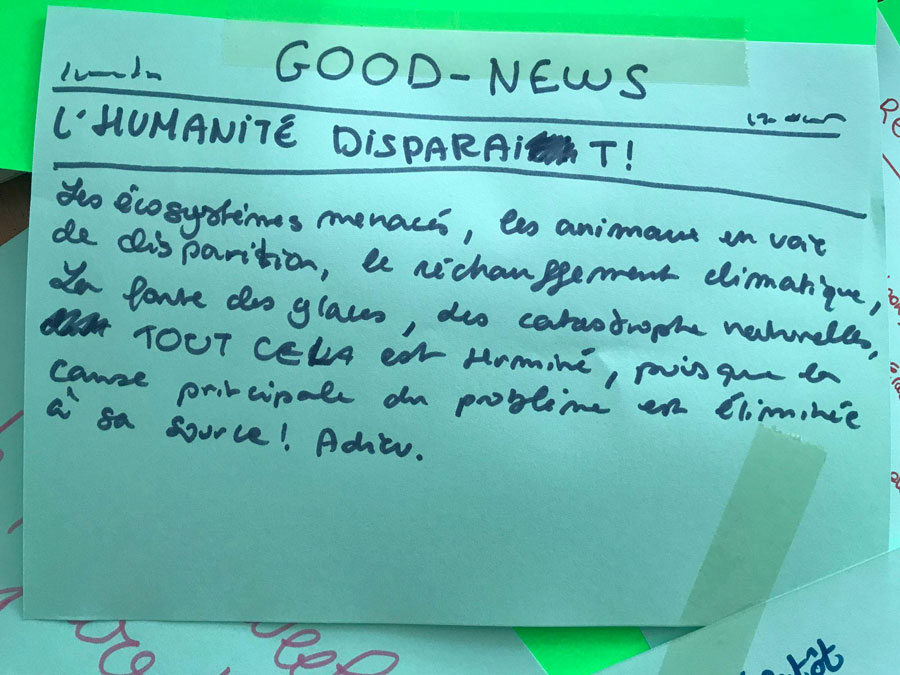 GOOD-NEWS
L'HUMANITÉ DISPARAIT!
Les écosystèmes menacés, les animaux en voie
de disparition, le réchauffement climatique,
La fonte des glaces, des catastrophe naturelles,
TOUT CELA est terminé, puisque la
cause principale du problème est éliminée
à sa source! Adieu.